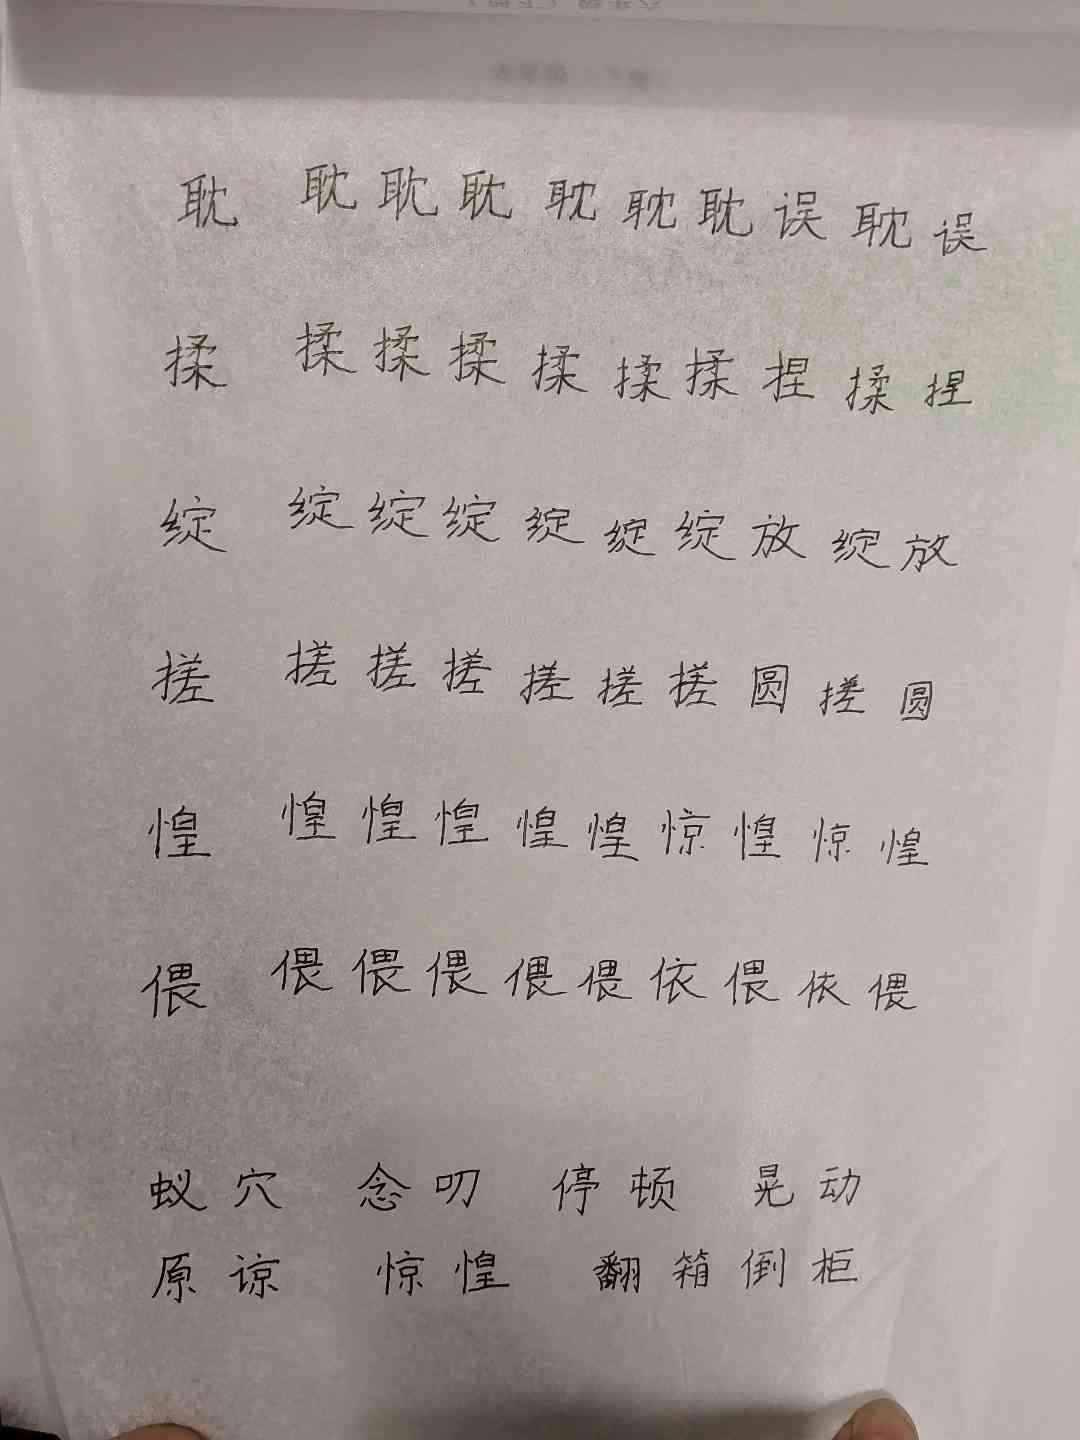 耽 耽 耽 耽 耽 耽 耽 误 耽 误
揉 揉 揉 揉 揉 揉 揉 捏 揉 捏
绽 绽 绽 绽 绽 绽 绽 放 绽 放
搓 搓 搓 搓 搓 搓 搓 圆 搓 圆
惶 惶 惶 惶 惶 惶 惊 惶 惊 惶
偎 偎 偎 偎 偎 偎 依 偎 依 偎
蚁穴 念叨 停顿 晃动
原谅 惊惶 翻箱倒柜